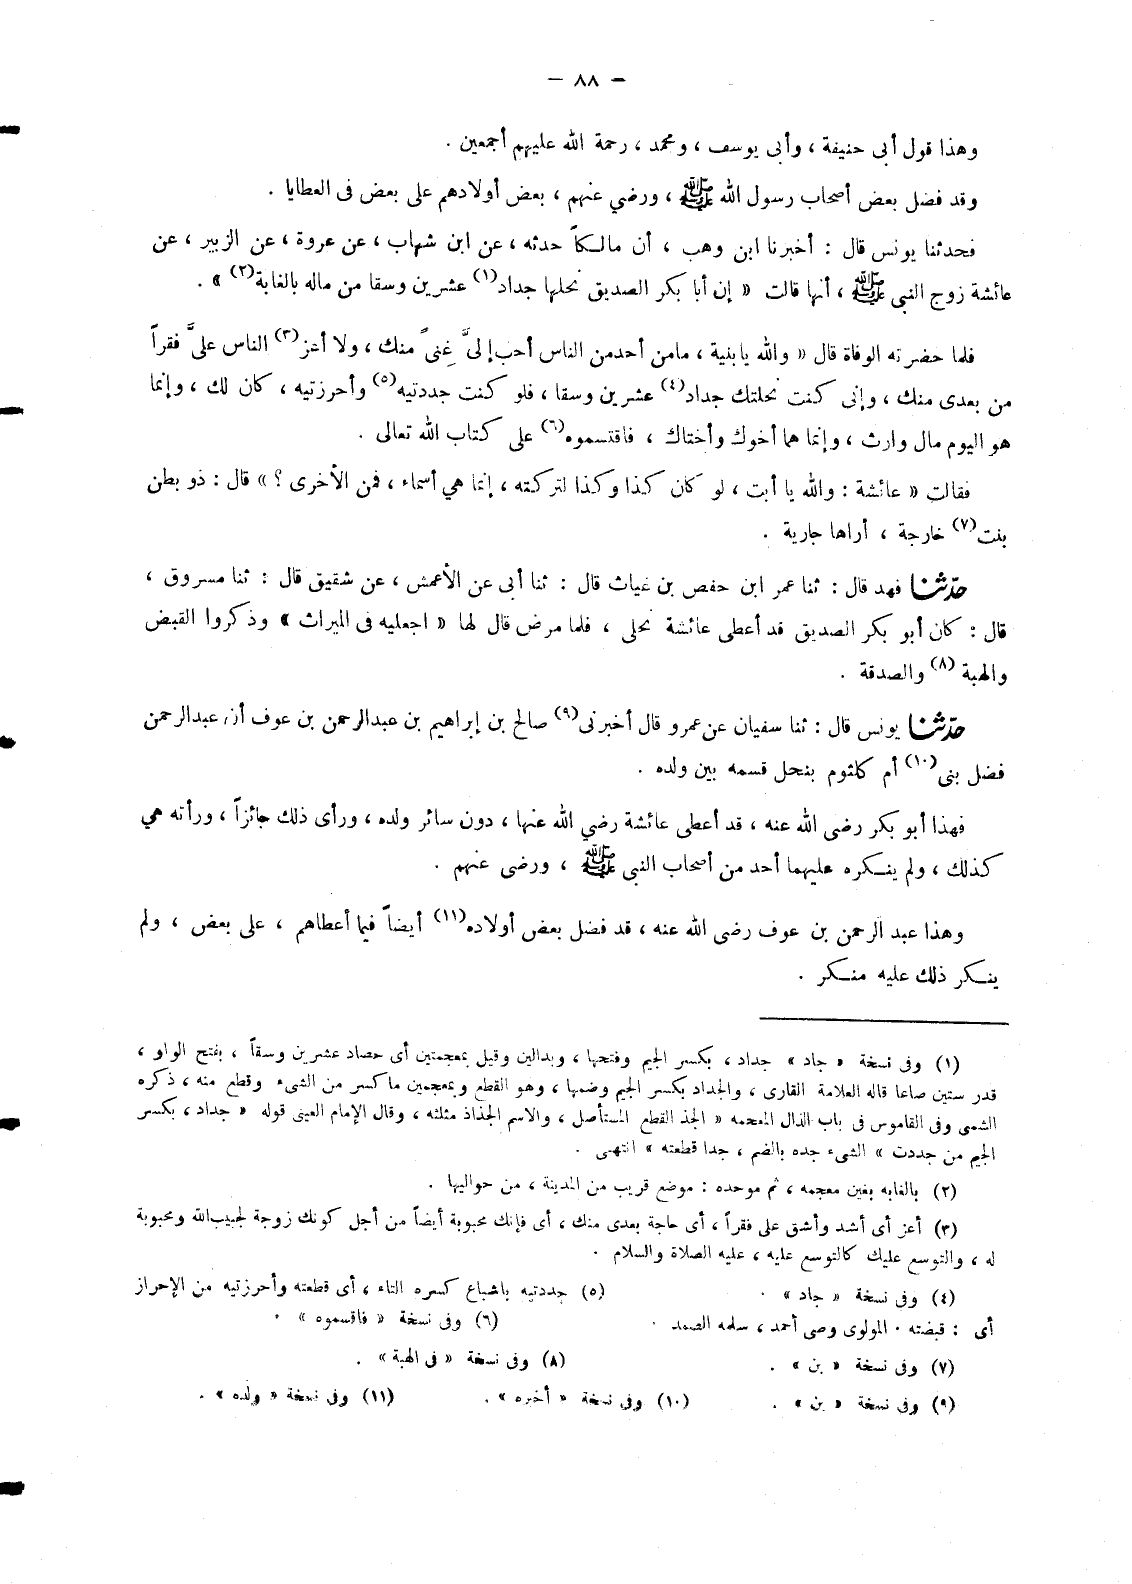 — ٨٨ —
وهذا قول أبى حنيفة ، وأبى يوسف ، ومحمد ، رحمة الله عليهم أجمعين .
وقد فضل بعض أصحاب رسول الله ﷺ ، ورضي عنهم ، بعض أولادهم على بعض فى العطايا .
فحدثنا يونس قال : أخبرنا ابن وهب ، أن مالكاً حدثه ، عن ابن شهاب ، عن عروة ، عن الزبير ، عن
عائشة زوج النبى ﷺ ، أنها قالت « إن أبا بكر الصديق نحلها جداد(١) عشرين وسقا من ماله بالغابة(٢) » .
فلما حضرته الوفاة قال « والله يابنية ، مامن أحدمن الناس أحب إلىَّ غِنىً منك ، ولا أعز(٣) الناس علىَّ فقراً
من بعدى منك ، وإنى كنت نحلتك جداد(٤) عشرين وسقا ، فلو كنت جددتيه(٥) وأحرزتيه ، كان لك ، وإنما
هو اليوم مال وارث ، وإنما هما أخوك وأختاك ، فاقتسموه(٦) على كتاب الله تعالى .
فقالت « عائشة : والله يا أبت ، لو كان كذا وكذا لتركته ، إنما هي أسماء ، فمن الأخرى ؟ » قال : ذو بطن
بنت(٧) خارجة ، أراها جارية .
حدّثنا فهد قال : ثنا عمر ابن حفص بن غياث قال : ثنا أبى عن الأعمش ، عن شقيق قال : ثنا مسروق ،
قال : كان أبو بكر الصديق قد أعطى عائشة نحلى ، فلما مرض قال لها « اجعليه فى الميراث » وذكروا القبض
والهبة (٨) والصدقة .
حدّثنا يونس قال : ثنا سفيان عن عمرو قال أخبرنى(٩) صالح بن إبراهيم بن عبدالرحمن بن عوف أن عبدالرحمن
فضل بنى(١٠) أم كلثوم بنحل قسمه بين ولده .
فهذا أبو بكر رضى الله عنه ، قد أعطى عائشة رضي الله عنها ، دون سائر ولده ، ورأى ذلك جائزاً ، ورأته هي
كذلك ، ولم ينكره عليهما أحد من أصحاب النبى ﷺ ، ورضى عنهم .
وهذا عبد الرحمن بن عوف رضى الله عنه ، قد فضل بعض أولاده(١١) أيضاً فيما أعطاهم ، على بعض ، ولم
ينكر ذلك عليه منكر .
(١) وفى نسخة « جاد » جداد ، بكسر الجيم وفتحها ، وبدالين وقيل بمعجمتين أى حصاد عشرين وسقاً ، بفتح الواو ،
قدر ستين صاعا قاله العلامة القارى ، والجداد بكسر الجيم وضمها ، وهو القطع وبمعجمين ماكسر من الشىء وقطع منه ، ذكره
الشمى وفى القاموس فى باب الذال المعجمه « الجذ القطع المستأصل ، والاسم الجذاذ مثلثه ، وقال الإمام العينى قوله « جداد ، بكسر
الجيم من جددت » الشىء جده بالضم ، جدا قطعته » انتهى .
(٢) بالغابه بغين معجمه ، ثم موحده : موضع قريب من المدينة ، من حواليها .
(٣) أعز أى أشد وأشق على فقراً ، أى حاجة بعدى منك ، أى فإنك محبوبة أيضاً من أجل كونك زوجة لجبيب الله ومحبوبة
له ، والتوسع عليك كالتوسع عليه ، عليه الصلاة والسلام .
(٤) وفى نسخة « جاد » . (٥) جددتيه باشباع كسره التاء ، أى قطعته وأحرزتيه من الإحراز
أى : قبضته . المولوى وصى أحمد ، سلمه الصمد . (٦) وفى نسخة « فاقسموه » .
(٧) وفى نسخة « بن » . (٨) وفى نسخة « فى الهبة » .
(٩) وفى نسخة « بن » . (١٠) وفى نسخة « أخبره » . (١١) وفى نسخة « ولده » .